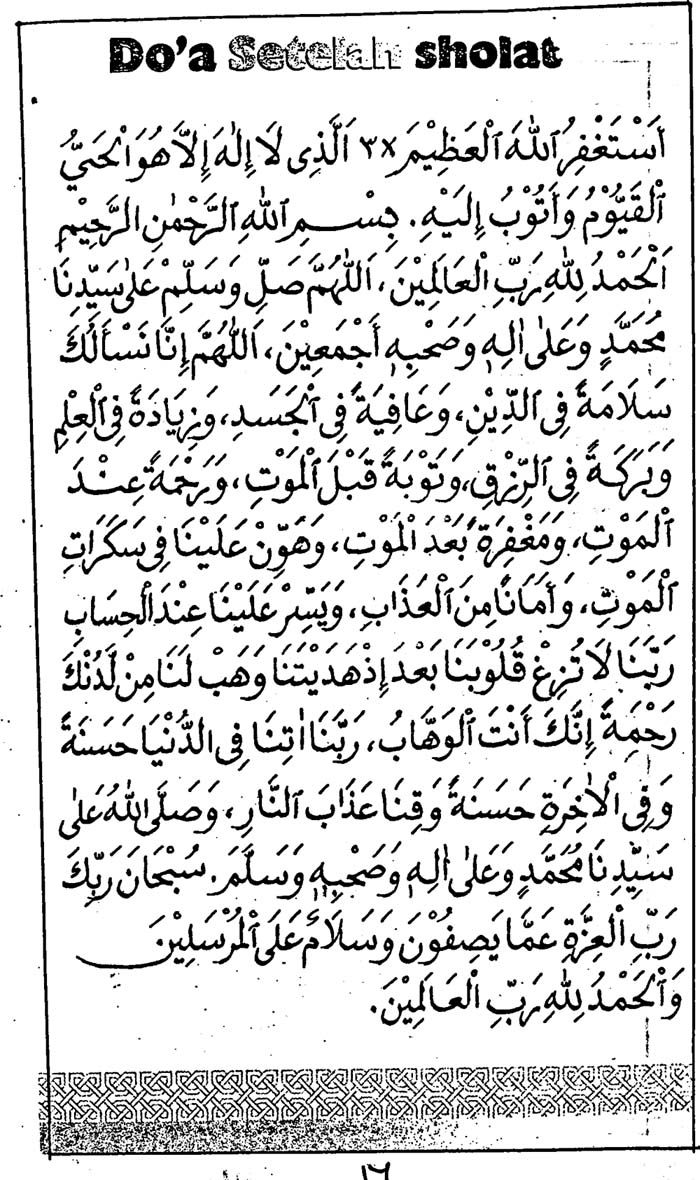 Do'a Setelah sholat
اَسْتَغْفِرُ اللهَ الْعَظِيْمَ ×٣ اَلَّذِى لَا إِلٰهَ إِلَّا هُوَ الْحَيُّ
الْقَيُّوْمُ وَأَتُوْبُ إِلَيْهِ. بِسْمِ اللهِ الرَّحْمٰنِ الرَّحِيْمِ
اَلْحَمْدُ لِلّٰهِ رَبِّ الْعَالَمِيْنَ، اَللّٰهُمَّ صَلِّ وَسَلِّمْ عَلٰى سَيِّدِنَا
مُحَمَّدٍ وَعَلٰى اٰلِهٖ وَصَحْبِهٖ أَجْمَعِيْنَ، اَللّٰهُمَّ إِنَّا نَسْأَلُكَ
سَلَامَةً فِى الدِّيْنِ، وَعَافِيَةً فِى الْجَسَدِ، وَزِيَادَةً فِى الْعِلْمِ
وَبَرَكَةً فِى الرِّزْقِ، وَتَوْبَةً قَبْلَ الْمَوْتِ، وَرَحْمَةً عِنْدَ
الْمَوْتِ، وَمَغْفِرَةً بَعْدَ الْمَوْتِ، وَهَوِّنْ عَلَيْنَا فِى سَكَرَاتِ
الْمَوْتِ، وَأَمَانًا مِنَ الْعَذَابِ، وَيَسِّرْ عَلَيْنَا عِنْدَ الْحِسَابِ
رَبَّنَا لَا تُزِغْ قُلُوْبَنَا بَعْدَ إِذْ هَدَيْتَنَا وَهَبْ لَنَا مِنْ لَدُنْكَ
رَحْمَةً إِنَّكَ أَنْتَ الْوَهَّابُ، رَبَّنَا اٰتِنَا فِى الدُّنْيَا حَسَنَةً
وَفِى الْاٰخِرَةِ حَسَنَةً وَقِنَا عَذَابَ النَّارِ، وَصَلَّى اللهُ عَلٰى
سَيِّدِنَا مُحَمَّدٍ وَعَلٰى اٰلِهٖ وَصَحْبِهٖ وَسَلَّمَ. سُبْحَانَ رَبِّكَ
رَبِّ الْعِزَّةِ عَمَّا يَصِفُوْنَ وَسَلَامٌ عَلَى الْمُرْسَلِيْنَ
وَالْحَمْدُ لِلّٰهِ رَبِّ الْعَالَمِيْنَ.
١٦